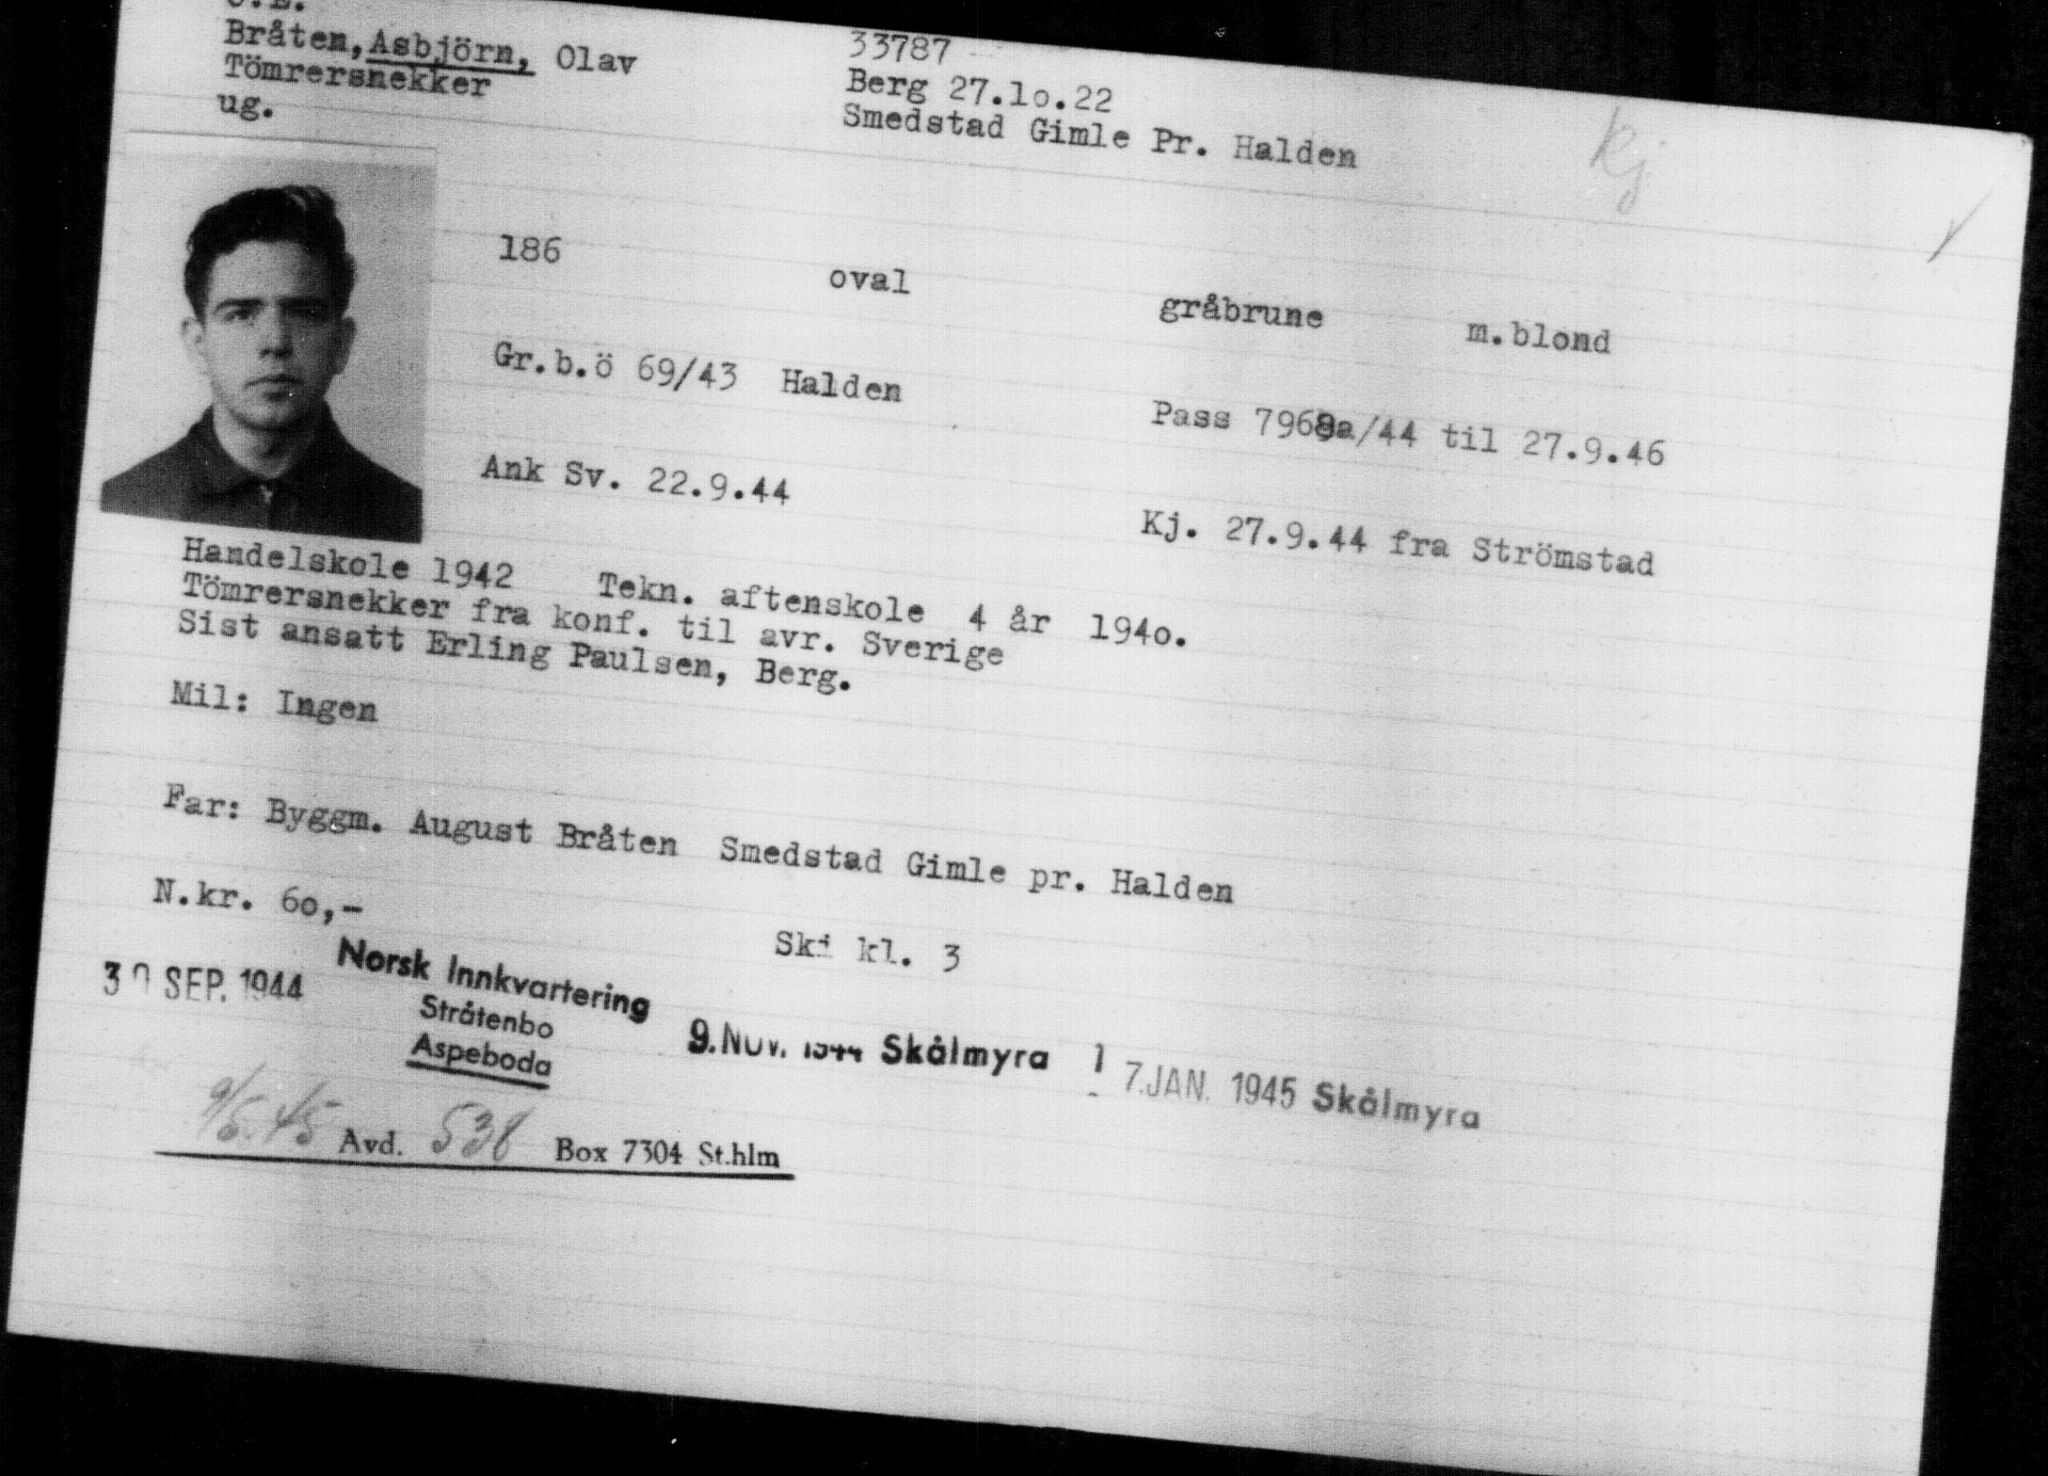 Bråten, Asbjörn, Olav 33787
Tömrersnekker Berg 27.lo.22
ug. Smedstad Gimle Pr. Halden
Kj
186 oval gråbrune m.blond
Gr.b.ö 69/43 Halden Pass 7968a/44 til 27.9.46
Ank Sv. 22.9.44 Kj. 27.9.44 fra Strömstad
Handelskole 1942 Tekn. aftenskole 4 år 194o.
Tömrersnekker fra konf. til avr. Sverige
Sist ansatt Erling Paulsen, Berg.
Mil: Ingen
Far: Byggm. August Bråten Smedstad Gimle pr. Halden
N.kr. 6o,- Ski kl. 3
30 SEP. 1944 Norsk Innkvartering
Stråtenbo
Aspeboda
9. NOV. 1944 Skålmyra 17. JAN. 1945 Skålmyra
9/5.45 Avd. 538 Box 7304 St.hlm